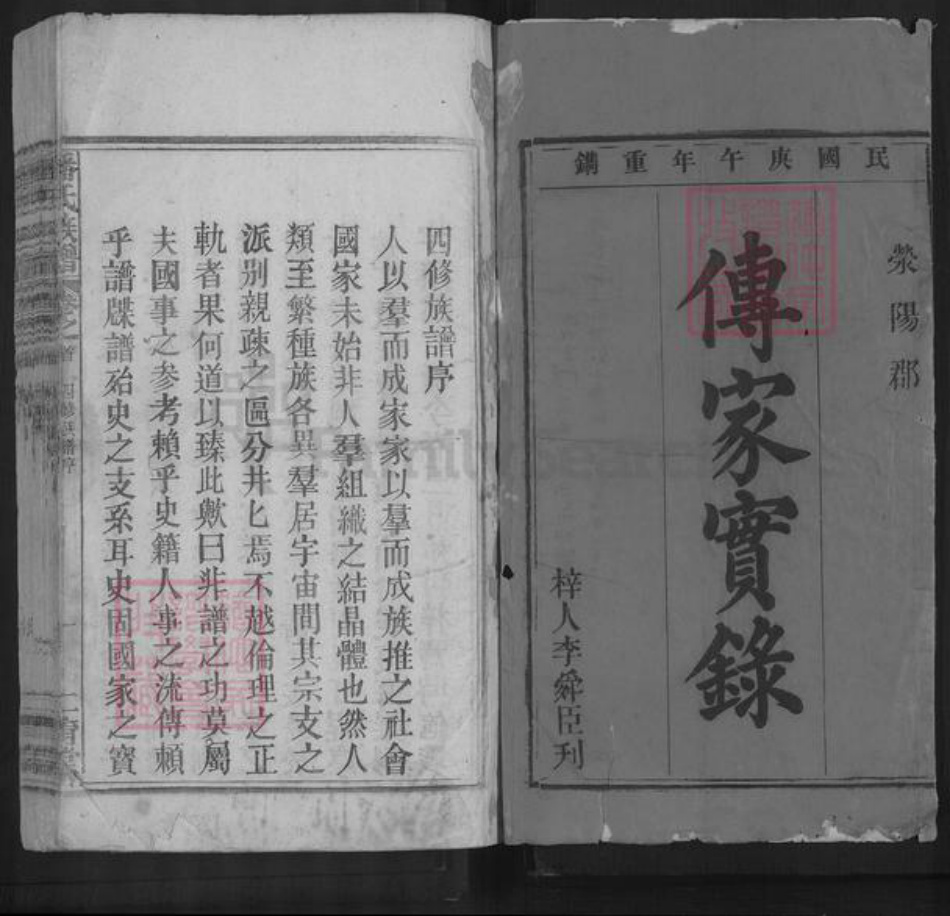 民國庚午年重鐫
滎陽郡
傳家實錄
梓人李舜臣刊
四修族譜序
人以羣而成家家以羣而成族推之社會
國家未始非人羣組織之結晶體也然人
類至繁種族各異羣居宇宙間其宗支之
派別親疎之區分井匕焉不越倫理之正
軌者果何道以臻此歟曰非譜之功莫屬
夫國事之參考賴乎史籍人事之流傳賴
乎譜牒譜殆史之支系耳史固國家之寶
潘氏族譜
卷之首
四修族譜序
一